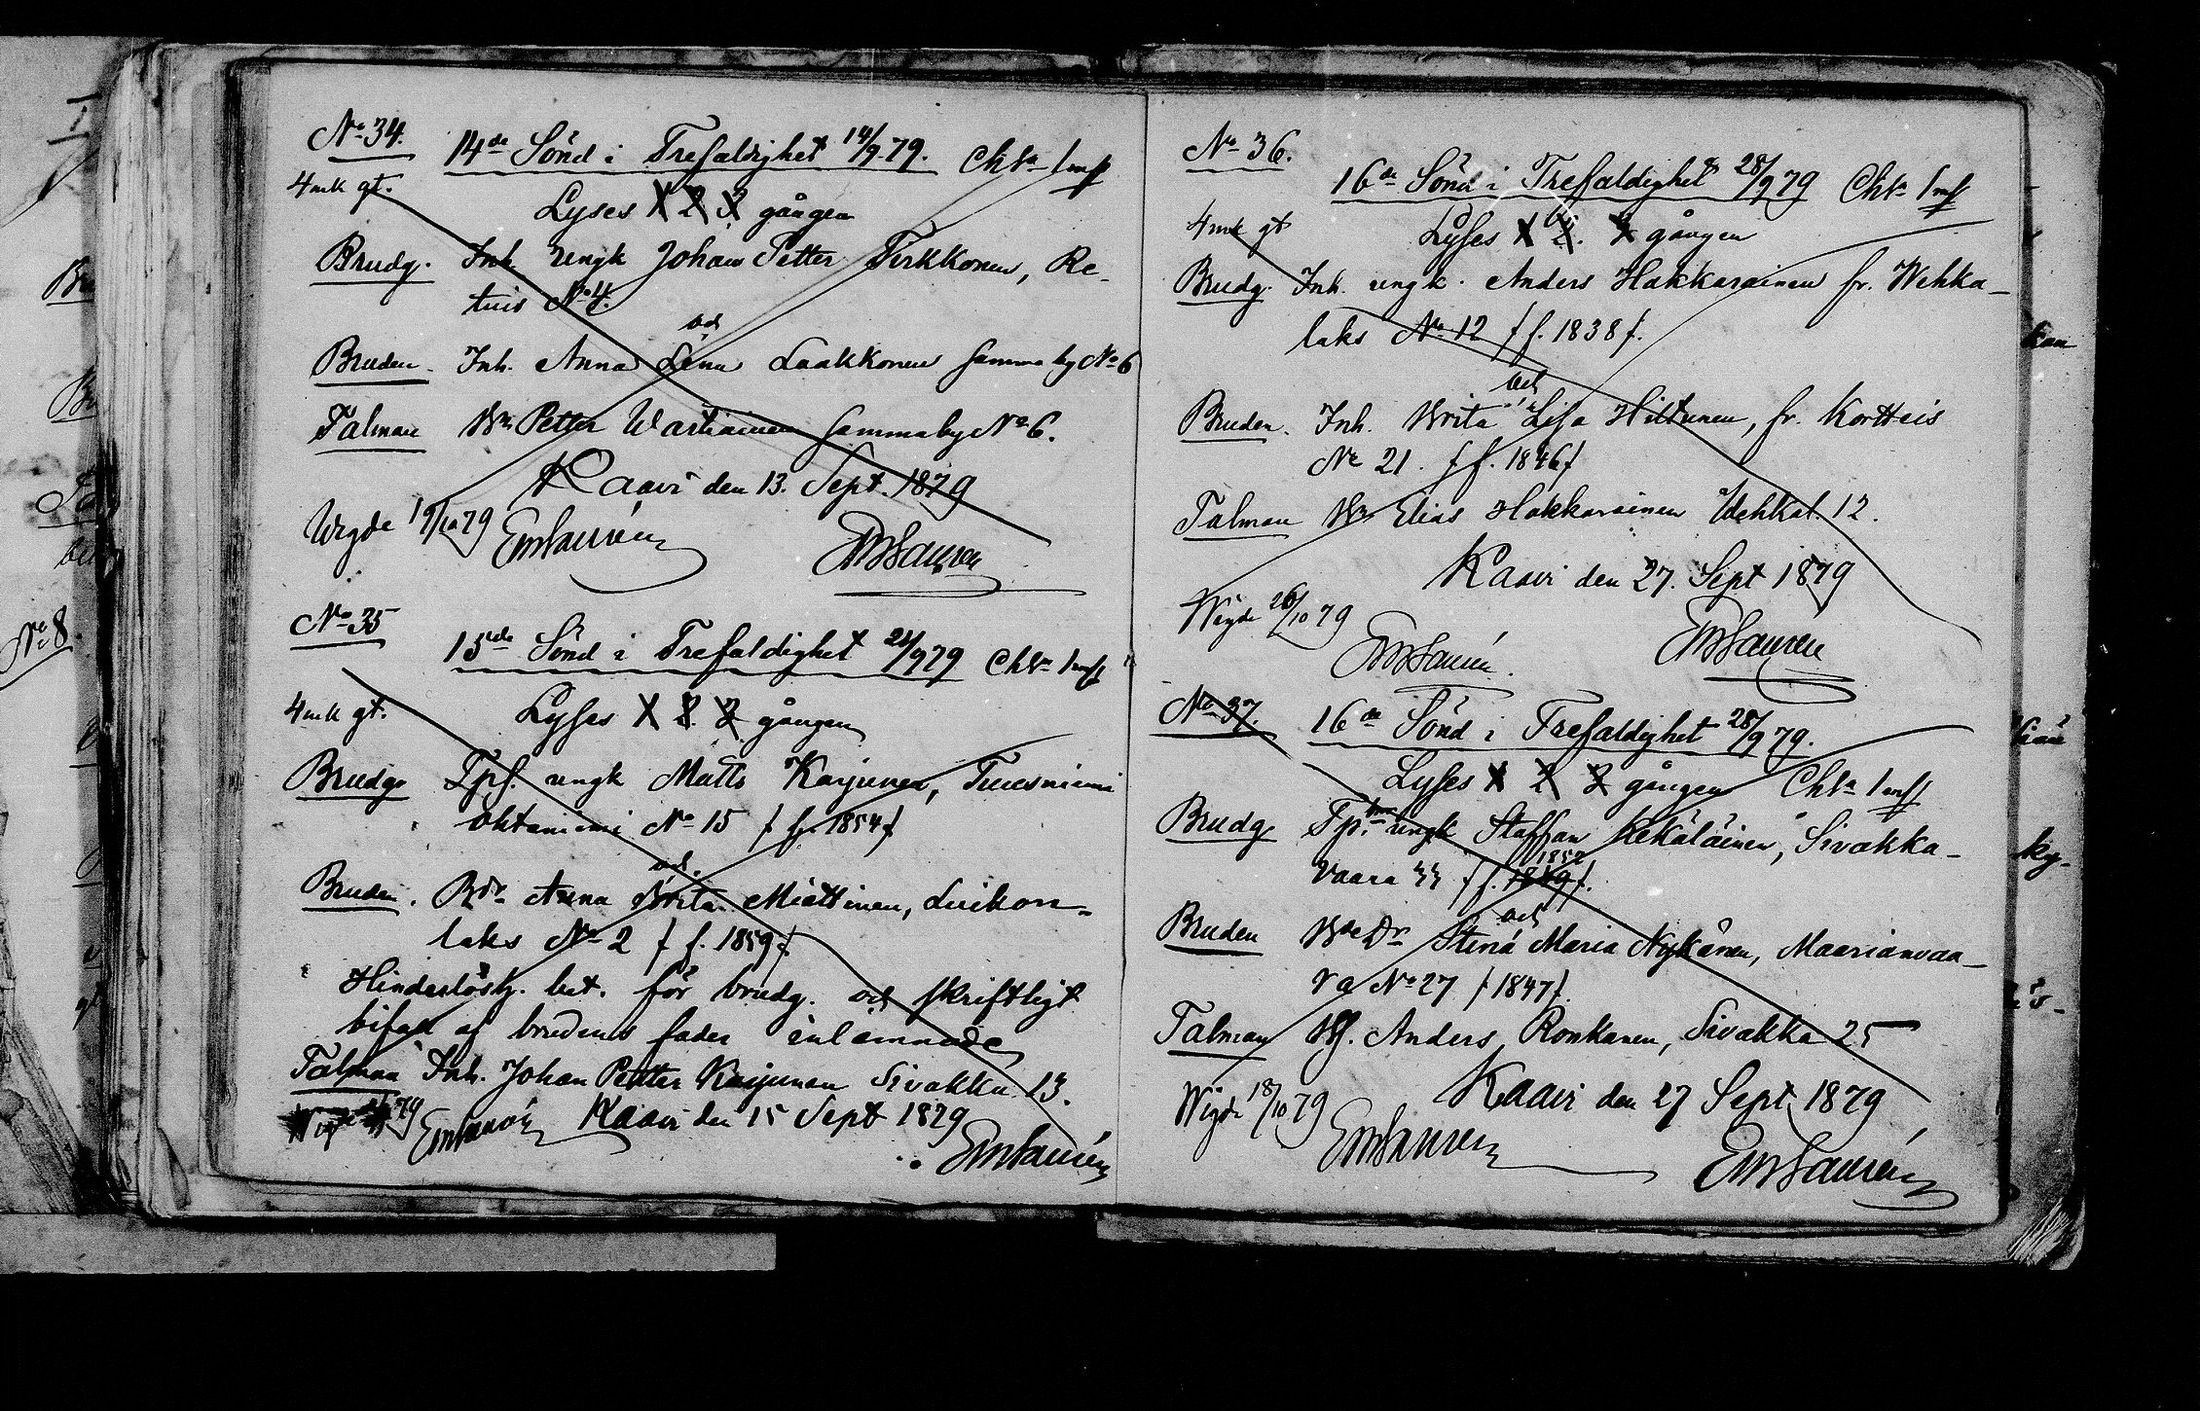 No 34.
14de Sönd i Trefaldighet 14/9.79. Chta 1 mk
4 mk gt.
Lyses 1 2 3 gången
Brudg. Inh. ungk Johan Petter Tirkkonen, Re-
tuis No 4.
och
Bruden. Inh. Anna Lena Laakkonen samma by No 6
Talman Bn Petter Wartiainen samma by No 6.
Kaavi den 13. Sept. 1879
Wigde 19/10 79 EmSaurén EmSaurén
No 35
15de Sönd i Trefaldighet 21/9 79 Chta 1 mk
4 mk gt.
Lyses 1 2 3 gången
Brudg. Tps. ungk Matts Karjunen, Tuusniemi
Oktaniemi No 15 f f. 1854 f
och
Bruden. Bdr Anna Brita Miettinen, Luikon-
laks No 2 f f. 1859 f
Hinderlösh. bet. för brudg. och skriftligt
bifall af brudens fader inlämnade
Talman Inh. Johan Petter Karjunen Sivakka 13.
79 EmSaurén Kaavi den 15 Sept 1879
EmSaurén
No 36.
16de Sönd i Trefaldighet 28/9 79 Chta 1 mk
4 mk gt
Lyses 1 2. 3 gången
Brudg. Inh. ungk. Anders Hakkarainen fr. Wehka-
laks No 12 f f. 1838 f.
och
Bruden. Inh. Brita Lisa Hiltunen, fr. Kortteis
No 21. f f. 1846 f
Talman Bn Elias Hakkarainen Wehkal. 12.
Kaavi den 27. Sept 1879
Wigde 26/10 79
EmSaurén. EmSaurén
No 37.
16de Sönd i Trefaldighet 28/9 79.
Lyses 1 2 3 gången Chta 1 mk
Brudg. Tp. ungk Staffan Kekäläinen, Sivakka-
1852
vaara 33 f f. 1849 f.
och
Bruden Bde Dr Stina Maria Nykänen, Maarianvaa-
ra No 27 f 1847 f.
Talman Bf. Anders Ronkanen, Sivakka 25
Kaavi den 27 Sept 1879
Wigde 18/10 79
EmSaurén EmSaurén
No 8